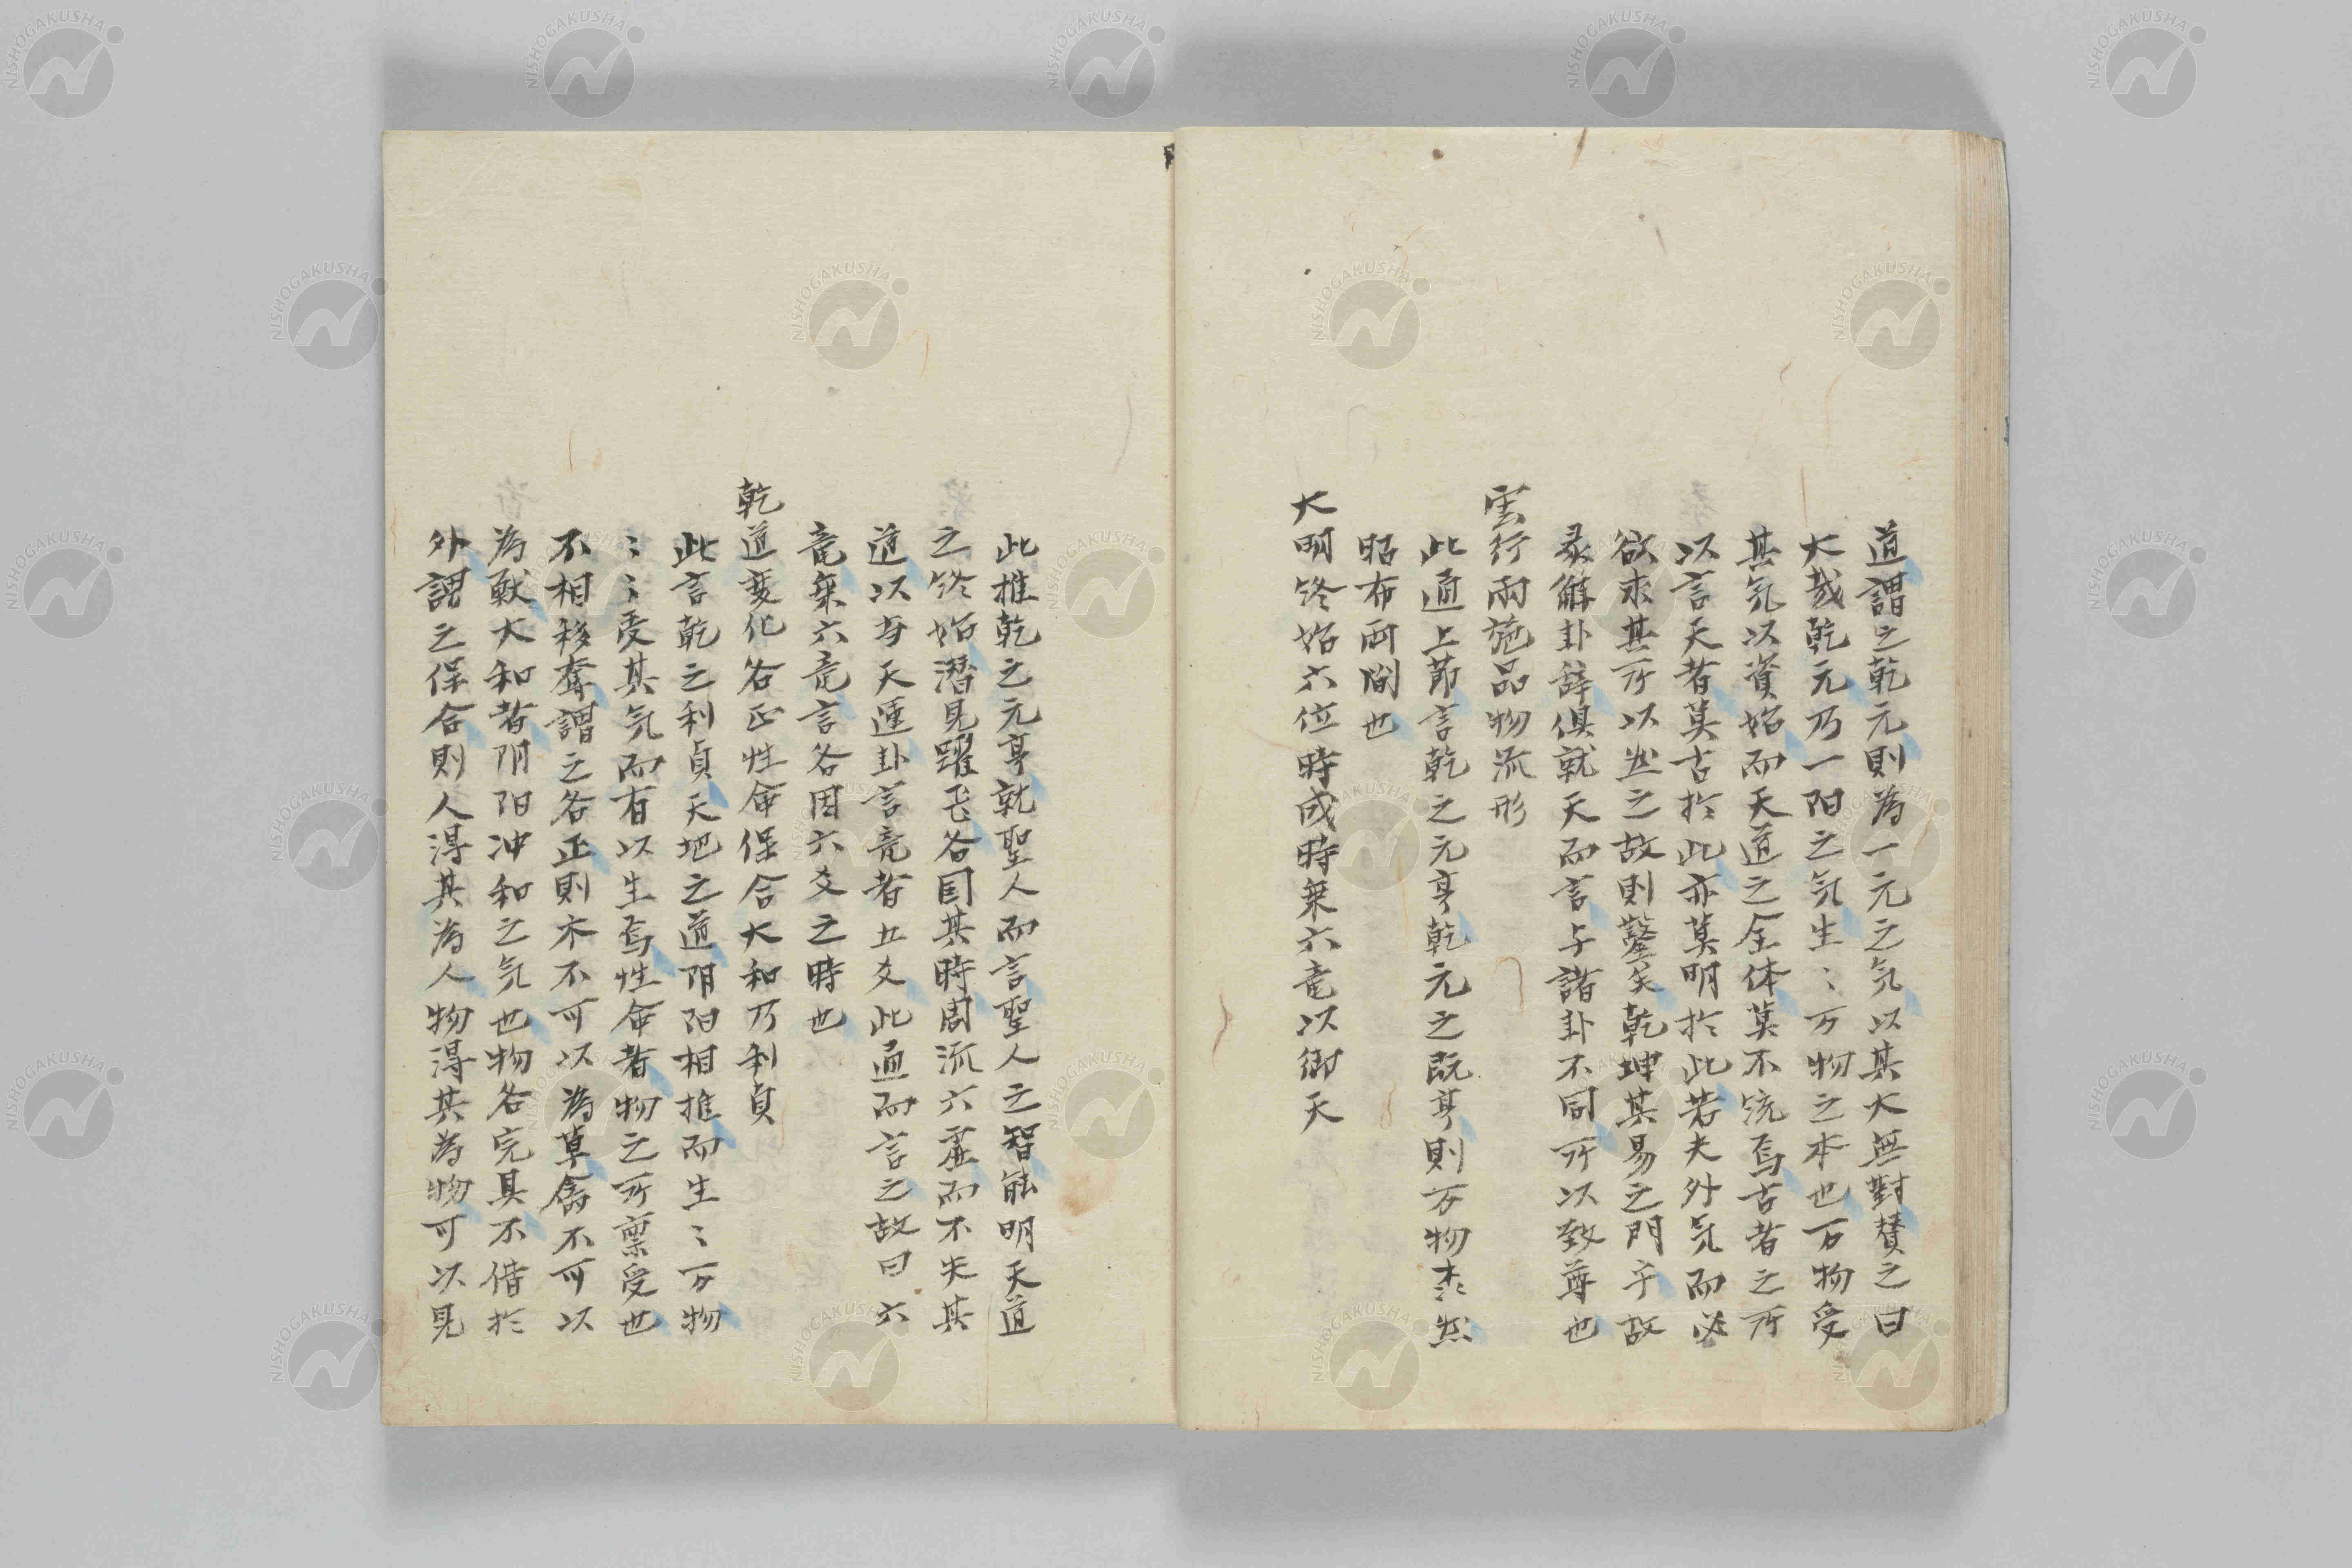 道謂之乾元則為一元之気以其大無對賛之曰
大哉乾元乃一阳之気生〻万物之本也万物受
其気以資始而天道之全体莫不统焉古者之所
以言天者莫古於此亦莫明於此若夫外気而必
欲求其所以然之故則鑿矣乾坤其易之門乎故
彖解卦辞俱就天而言与諸卦不同所以致尊也
雲行雨施品物流形
此通上節言乾之元亨乾元之既亨則万物杰然
昭布两間也
大明终始六位時成時乗六竜以御天
此推乾之元亨就聖人而言聖人之智能明天道
之终始潜見躍飞各因其時周流六虚而不失其
道以当天運卦言竜者五爻此通而言之故曰六
竜乗六竜言各因六爻之時也
乾道変化各正性命保合大和乃利貞
此言乾之利貞天地之道阴阳相推而生〻万物
〻〻受其気而有以生焉性命者物之所禀受也
不相移奪謂之各正則木不可以為草禽不可以
為獣大和者阴阳冲和之気也物各完具不借於
外謂之保合則人得其為人物得其為物可以見
NISHOGAKUSHA